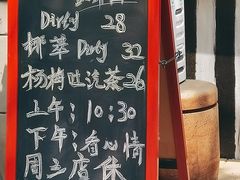 Dirty 28
椰萃 Dirty 32
杨梅吐汽茶 26
上午：10:30
下午：看心情
周三店休